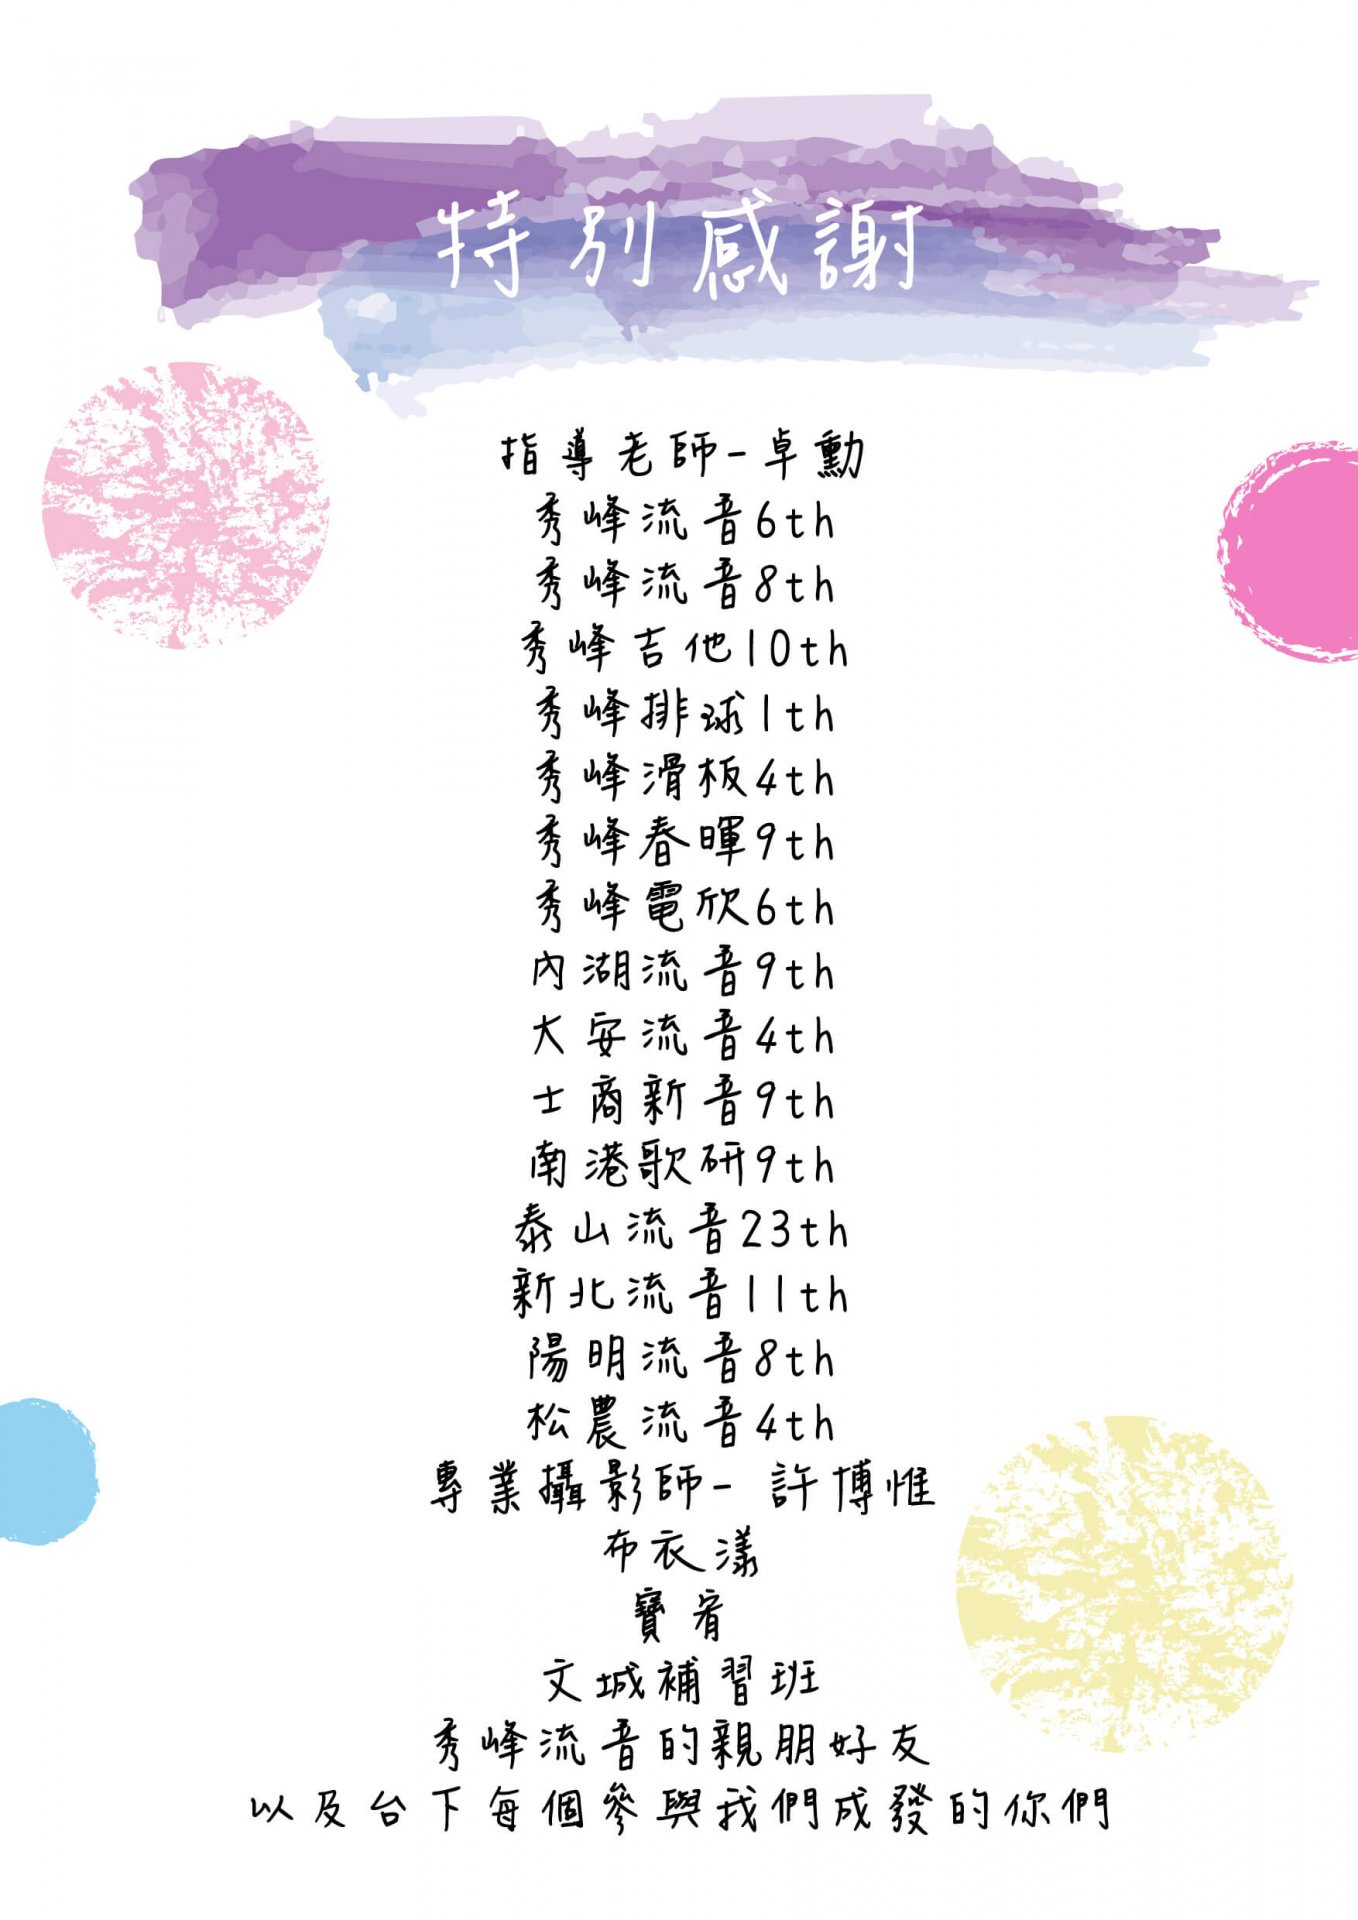 特別感謝
指導老師-卓勳
秀峰流音6th
秀峰流音8th
秀峰吉他10th
秀峰排球1th
秀峰滑板4th
秀峰春暉9th
秀峰電欣6th
內湖流音9th
大安流音4th
士商新音9th
南港歌研9th
泰山流音23th
新北流音11th
陽明流音8th
松農流音4th
專業攝影師- 許博惟
布衣漾
寶宥
文城補習班
秀峰流音的親朋好友
以及台下每個參與我們成發的你們